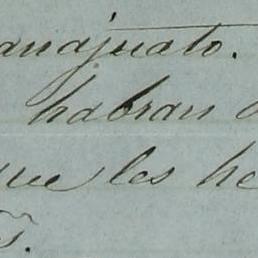 anajuato.
habran
que les he